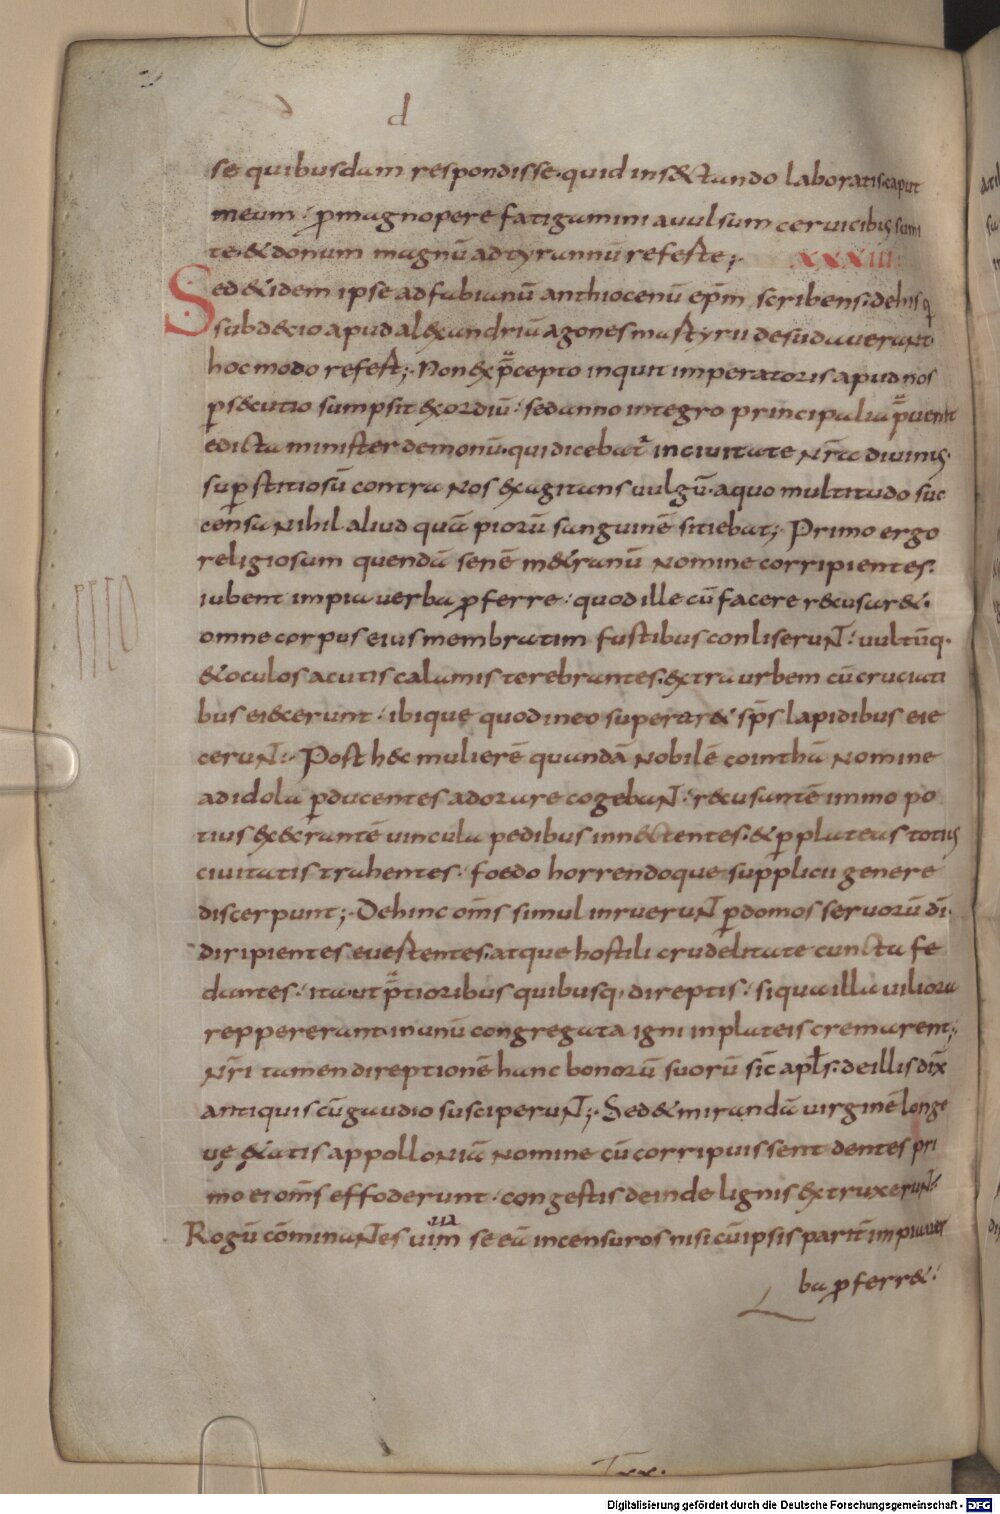 d
se quibusdam respondisse. quid insectando laboratis. caput
meum. ꝓmagnopere fatigamini auulsum ceruicibꝰ sumi
te. & donum magnū ad tyrannū referte;
XXXIII:
Sed & idem ipse ad fabianū anthiocenū ep̄m scribens. de his q̄
sub decio apud alexandriā agones martyrii desudauerant
hoc modo refert; Non ex p̄cepto inquit imperatoris apud nos
ꝑsecutio sumpsit exordiū. sed anno integro principalia p̄uenit
edicta minister demonū. qui dicebat̄ in ciuitate nr̄a diuinꝰ.
suꝑstitiosū contra nos exagitans uulgū. a quo multitudo suc
censa nihil aliud quā piorū sanguinē sitiebat; Primo ergo
religiosum quendā senē m&ranū nomine corripientes.
iubent impia uerba ꝓferre. quod ille cū facere recusar&.
omne corpus eius membratim fustibus conliserunt. uultūq.
& oculos acutis calamis terebrantes. extra urbem cū cruciati
bus eiecerunt. ibique quod in eo superar& sp̄s lapidibus eie
cerunt; Post hec mulierē quandā nobilē cointhā nomine
ad idola ꝑducentes adorare cogebant. recusantē immo po
tius execrantē uincula pedibus innectentes. & ꝑ plateas totiꝰ
ciuitatis trahentes. foedo horrendoque supplicii genere
discerpunt; Dehinc om̄s simul inruerunt ꝑ domos seruorū dī.
diripientes euertentes. atque hostili crudelitate cuncta fe
dantes. ita ut p̄tioribus quibusq. direptis. si qua illa uiliora
reppererant. in unū congregata igni in plateis cremarent;
Nr̄i tamen direptionē hanc bonorū suorū sic̄ apl̄s. de illis dix̄
antiquis cū gaudio susceperunt; Sed & mirandā uirginē longe
uę ętatis appolloniā nomine cū corripuissent dentes pri
mo ei om̄s effoderunt. congestis deinde lignis extruxerunt
Rogū cōminantes uiuā se eā incensuros nisi cū ipsis parit̄ impia uer
ba ꝓferr&.